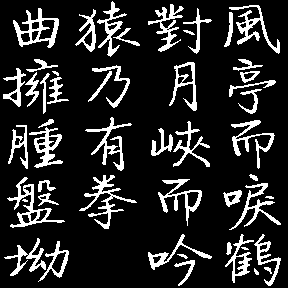 風亭而唳鶴
對月峽而吟
猿乃有拳
曲擁腫盤坳